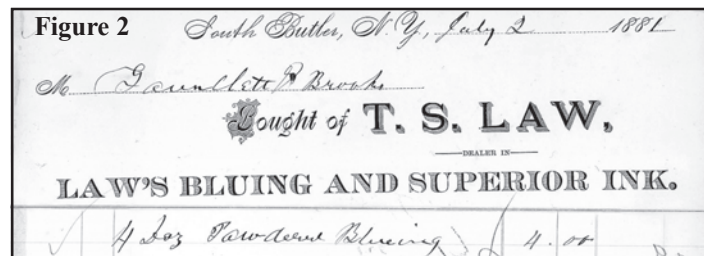 Figure 2
South Butler, N.Y., July 2 1881
M Gaunlett & Brooks
Bought of T. S. LAW,
DEALER IN
LAW'S BLUING AND SUPERIOR INK.
4 Doz Powdered Blueing 4.00